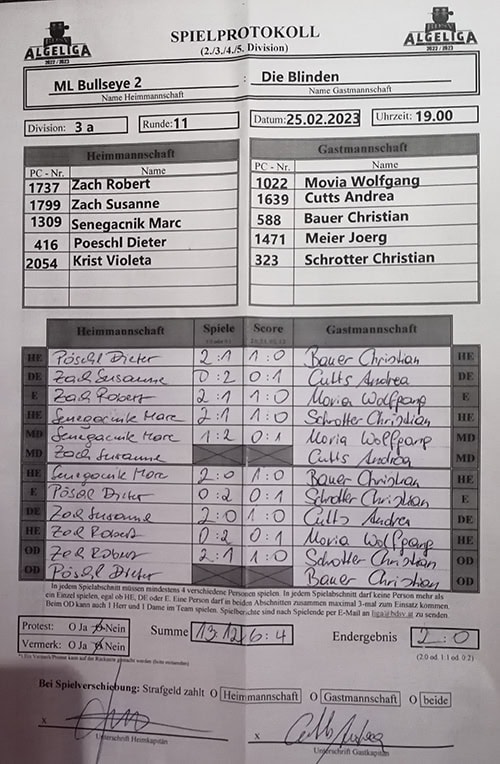 ALGELIGA
2022 / 2023
SPIELPROTOKOLL
(2./3./4./5. Division)
ALGELIGA
2022 / 2023
ML Bullseye 2 : Die Blinden
Name Heimmannschaft Name Gastmannschaft
Division: 3 a Runde: 11 Datum: 25.02.2023 Uhrzeit: 19.00
Heimmannschaft Gastmannschaft
PC - Nr. Name PC - Nr. Name
1737 Zach Robert 1022 Movia Wolfgang
1799 Zach Susanne 1639 Cutts Andrea
1309 Senegacnik Marc 588 Bauer Christian
416 Poeschl Dieter 1471 Meier Joerg
2054 Krist Violeta 323 Schrotter Christian
Heimmannschaft Spiele Score Gastmannschaft
HE Pöschl Dieter 2:1 1:0 Bauer Christian HE
DE Zach Susanne 0:2 0:1 Cutts Andrea DE
E Zach Robert 2:1 1:0 Movia Wolfgang E
HE Senegacnik Marc 2:1 1:0 Schrotter Christian HE
MD Senegacnik Marc 1:2 0:1 Movia Wolfgang MD
MD Zach Susanne Cutts Andrea MD
HE Senegacnik Marc 2:0 1:0 Bauer Christian HE
E Pöschl Dieter 0:2 0:1 Schrotter Christian E
DE Zach Susanne 2:0 1:0 Cutts Andrea DE
HE Zach Robert 0:2 0:1 Movia Wolfgang HE
OD Zach Robert 2:1 1:0 Schrotter Christian OD
OD Pöschl Dieter Bauer Christian OD
In jedem Spielabschnitt müssen mindestens 4 verschiedene Personen spielen. In jedem Spielabschnitt darf keine Person mehr als
ein Einzel spielen, egal ob HE, DE oder E. Eine Person darf in beiden Abschnitten zusammen maximal 3-mal zum Einsatz kommen.
Beim OD kann auch 1 Herr und 1 Dame im Team spielen. Spielberichte sind nach Spielende per E-Mail an liga@bdsv.at zu senden.
Protest: O Ja O Nein Summe 13:12 6:4 Endergebnis 2:0
Vermerk: O Ja O Nein (2:0 od. 1:1 od. 0:2)
Bei Spielverschiebung: Strafgeld zahlt O Heimmannschaft O Gastmannschaft O beide
x x
Unterschrift Heimkapitän Unterschrift Gastkapitän